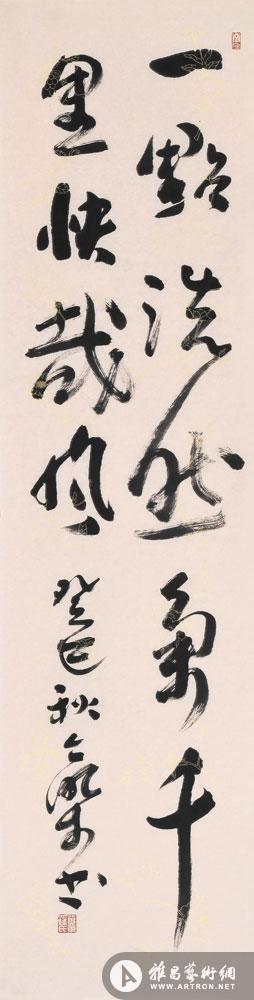 一點浩然氣千
里快哉风
癸巳秋书
雅昌藝術網
WWW.ARTRON.NET